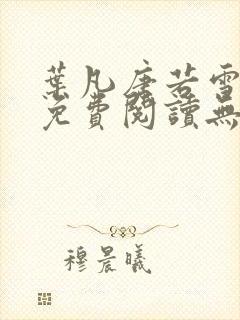 葉凡唐若雪
免費閱讀無
穆晨曦